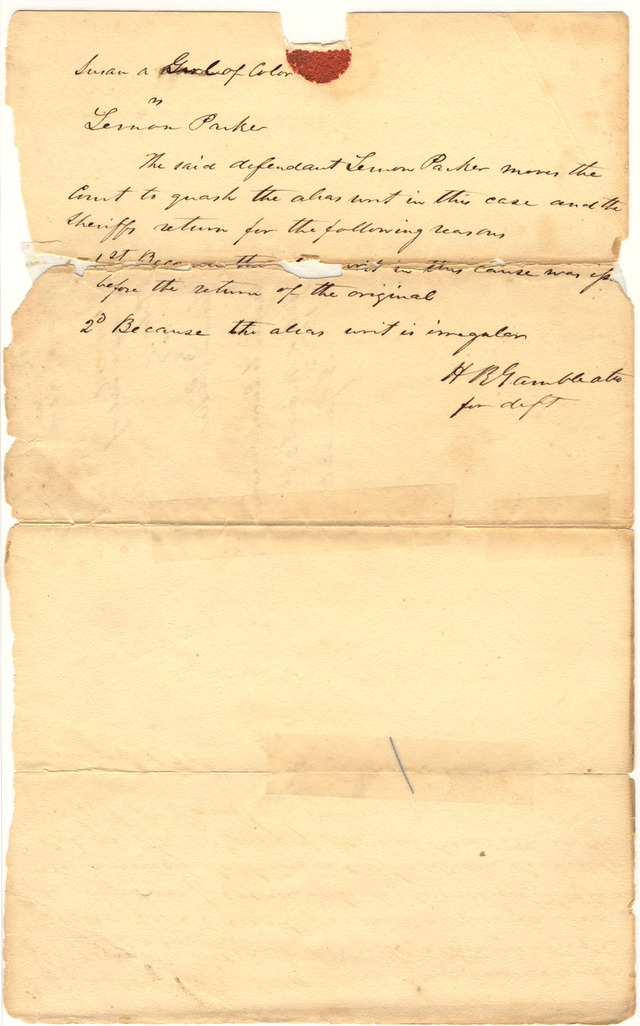 Susan a Girl of Color
vs
Lemon Parker
The said defendant Lemon Parker moves the
Court to quash the alias writ in this case and the
Sheriffs return for the following reasons
1st in this cause was
before the return of the original
2d Because the alias writ is irregular
H R Gamble atto
for deft